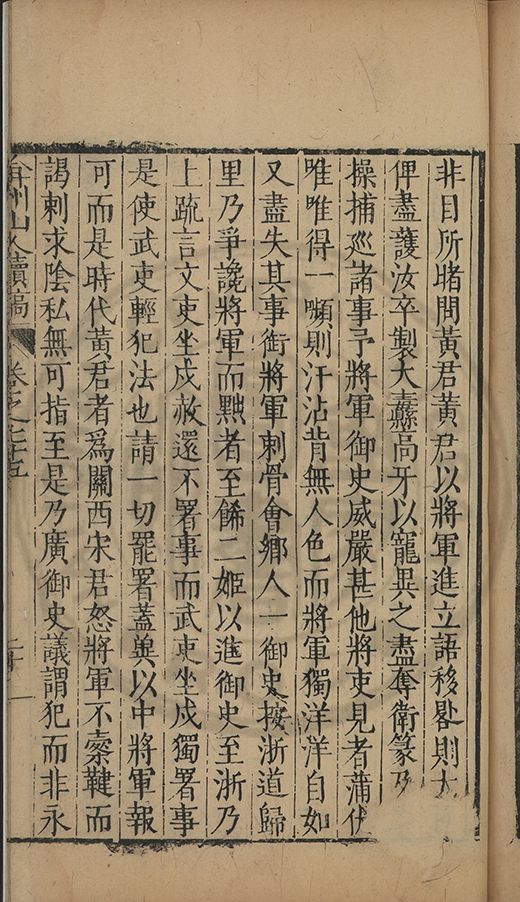 非目所睹問黃君黃君以將軍進立語移晷則大
俾盡護汝卒製大纛高牙以寵異之盡奪衛篆乃
操捕巡諸事予將軍御史威嚴甚他將吏見者蒲伏
唯唯得一嚬則汗沾背無人色而將軍獨洋洋自如
又盡失其事銜將軍刺骨會鄉人一御史按浙道歸
里乃爭讒將軍而黠者至餙二姬以進御史至浙乃
上疏言文吏坐戍赦還不署事而武吏坐戍獨署事
是使武吏輕犯法也請一切罷署蓋與以中將軍報
可而是時代黃君者爲關西宋君怒將軍不櫜鞬而
謁刺求陰私無可指至是乃廣御史議謂犯而非永
弇州山人續稿 卷之七十五